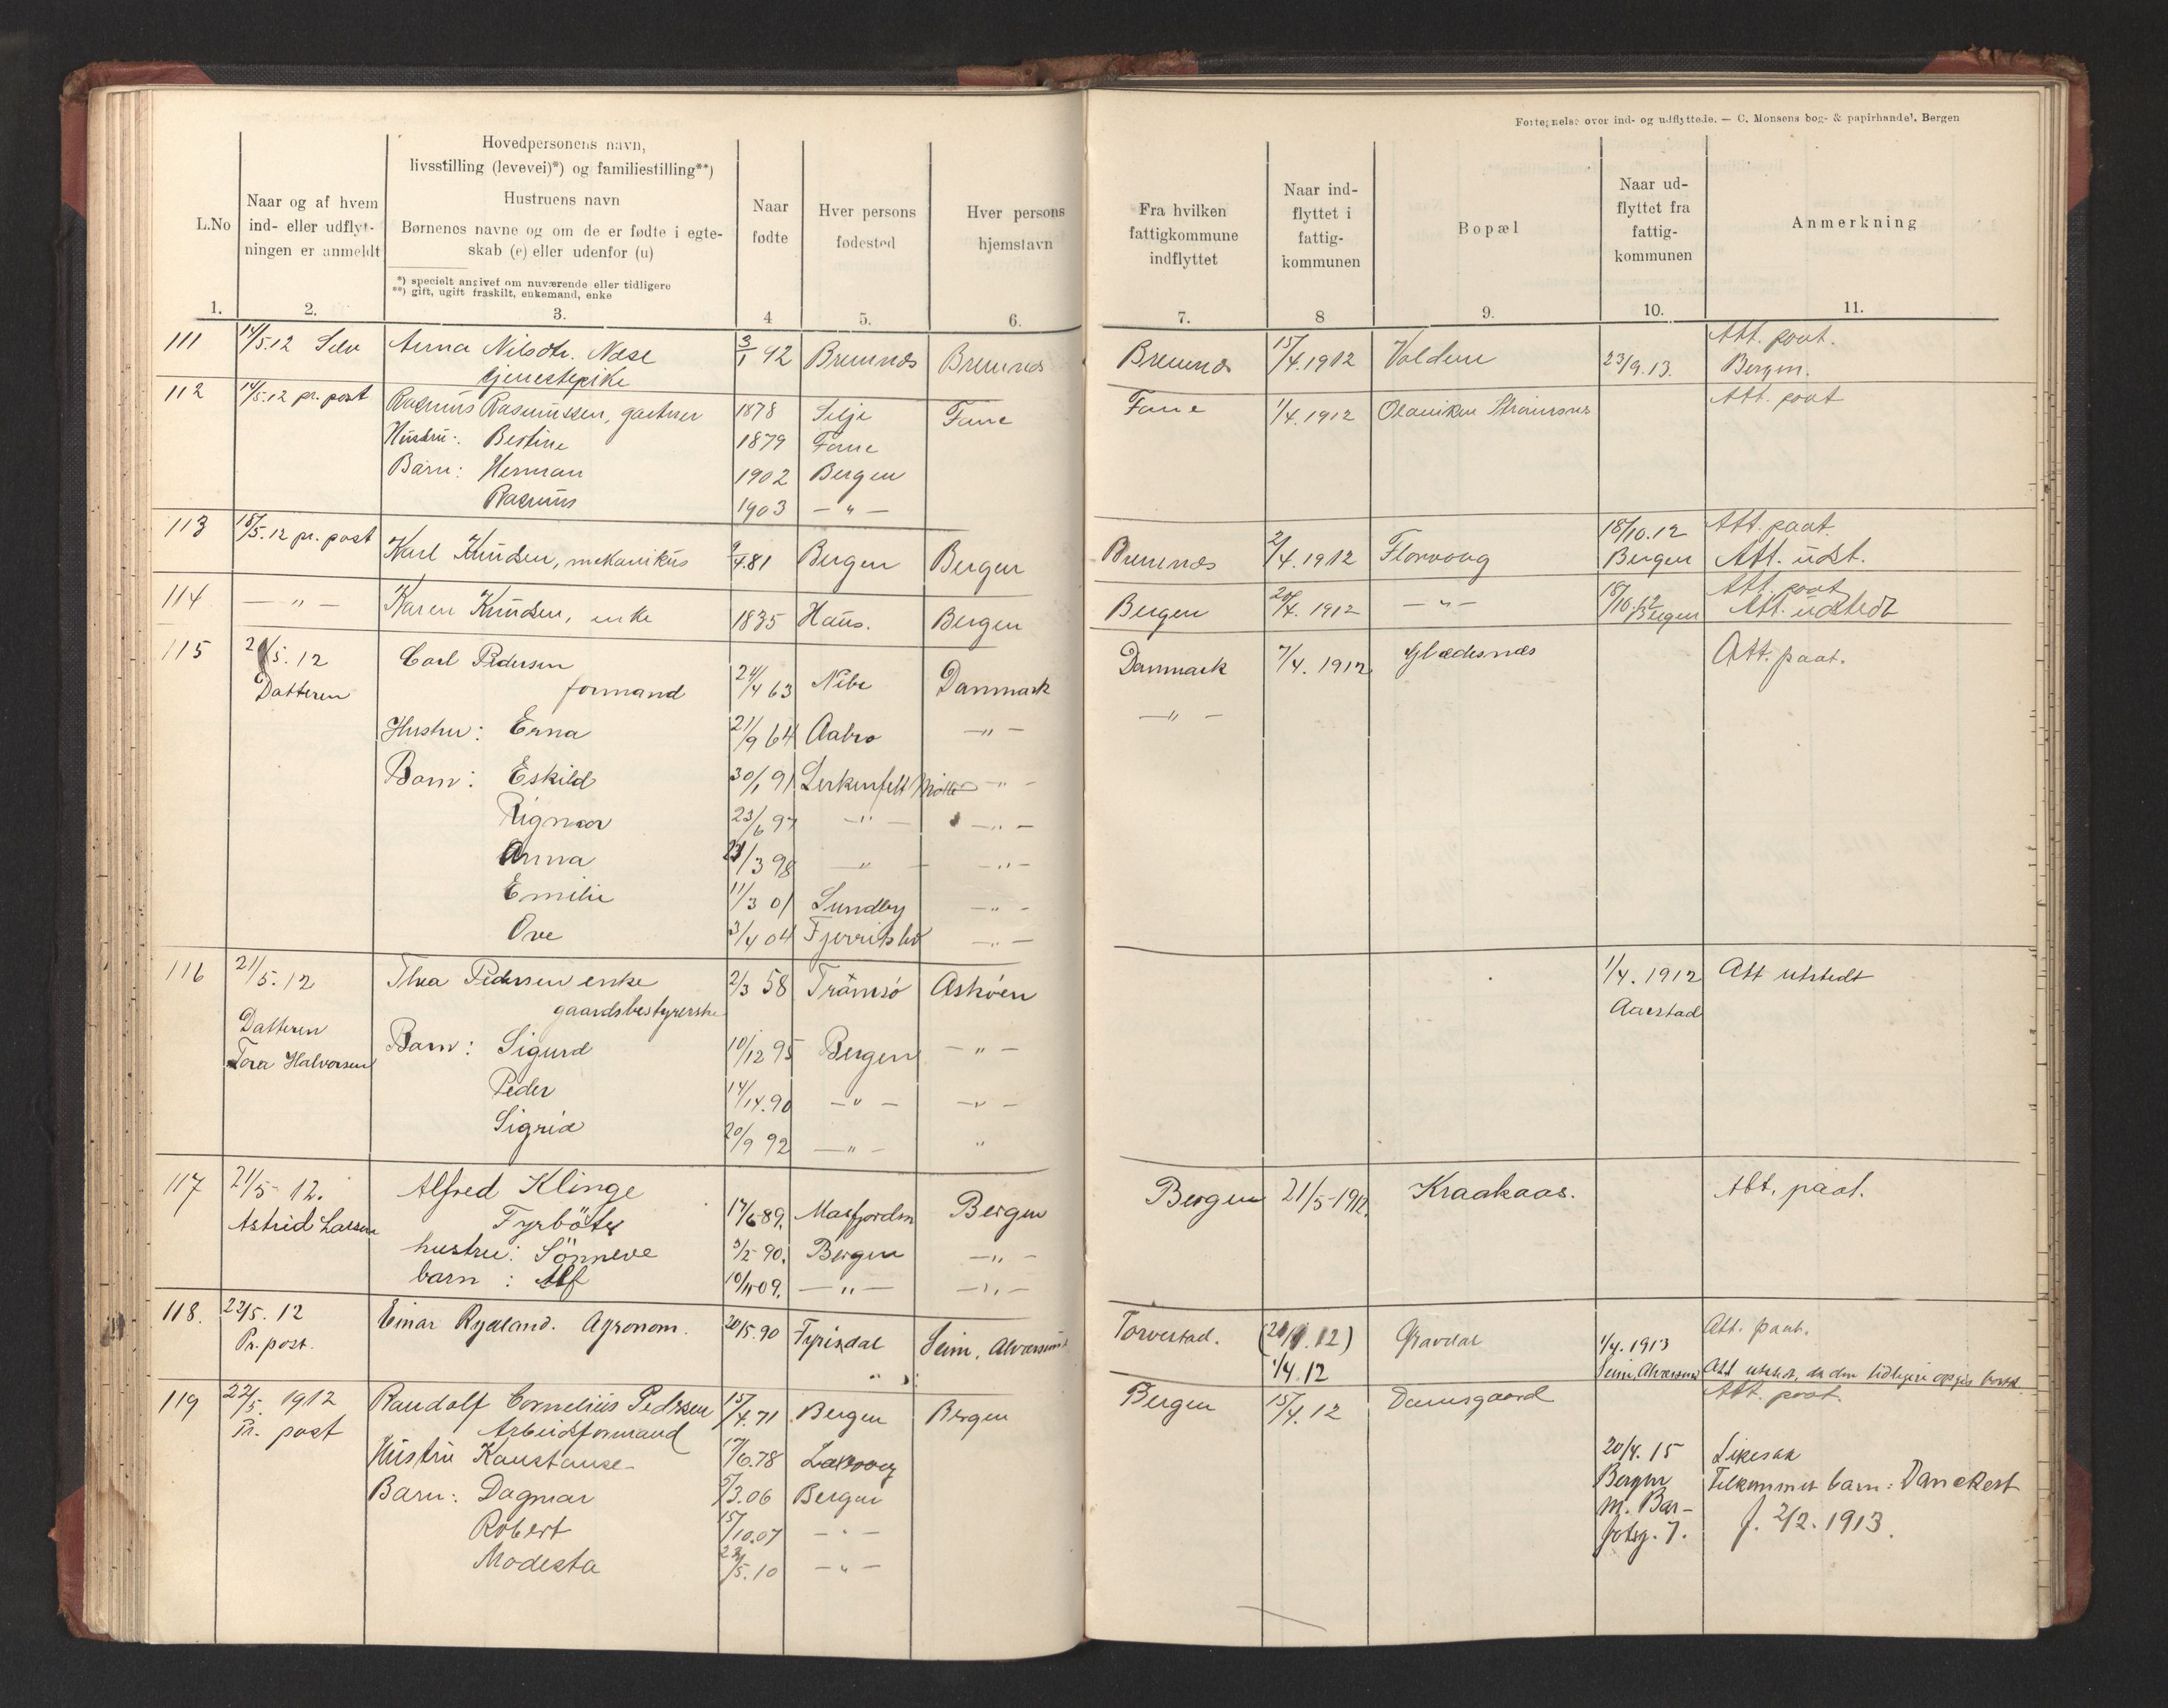 Fortegnelse over ind- og udflyttede. — C. Monsens bog- & papirhandel, Bergen
L.No
Naar og af hvem ind- eller udflyt- ningen er anmeldt
Hovedpersonens navn,
livsstilling (levevei)*) og familiestilling**)
Hustruens navn
Børnenes navne og om de er fødte i egte-
skab (e) eller udenfor (u)
*) specielt angivet om nuværende eller tidligere
**) gift, ugift fraskilt, enkemand, enke
Naar fødte
Hver persons fødested
Hver persons hjemstavn
Fra hvilken fattigkommune indflyttet
Naar ind- flyttet i fattig- kommunen
Bopæl
Naar ud- flyttet fra fattig- kommunen
Anmerkning
1. 2. 3. 4 5. 6. 7. 8 9. 10. 11.
111 14/5.12 Selv Anna Nilsdtr. Næse 3/1 92 Bremnæs Bremnæs Bremnæs 15/4.1912 Valdem 23/9.13. Att. paat.
tjenestepike Bergen.
112 14/5.12 pr. post Rasmus Rasmussen, gartner 1878 Selje Fane Fane 1/4.1912 Olaviken Strømsnes Att. paat
Hustru: Bertine 1879 Fane
Barn: Herman 1902 Bergen
Rasmus 1903 — " —
113 18/5.12 pr. post Karl Knudsen, mekanikus 9/4.81 Bergen Bergen Bremnæs 2/4.1912 Florvaag 18/10.12 Att. paat.
Bergen Att. udst.
114 — " — Karen Knudsen, enke 1835 Haus. Bergen Bergen 20/4. 1912 — " — 18/10.12 Att. paat
Bergen Att. udstedt
115 20/5. 12 Carl Pedersen Danmark 7/4. 1912 Glædesnæs Att. paat.
Datteren formand 24/4 63 Nibe Danmark
— " —
Hustru: Erna 21/9 64 Aabro — " —
Barn: Eskild 30/1 91 Lerkenfelt Mølle — " —
Rigmor 23/6 97 — " — — " —
Anna 21/3 98 — " — — " —
Emilie 11/3 01 Lundby — " —
Ove 3/4 04 Fjerritslev — " —
116 21/5.12 Thea Pedersen enke 2/3 58 Tromsø Askøen 1/4. 1912 Att utstedt
gaardsbestyrerske Aarstad
Datteren
Tora Halvorsen Barn: Sigurd 10/12 95 Bergen — " —
Peder — " — — " —
Sigrid 20/9 92 — " — "
117 21/5 12. Alfred Klinge Bergen 21/5-1912. Kraakaas. Att. paat.
Astrid Larsen Fyrbøter 17/6 89. Masfjorden Bergen
hustru: Sönneve 3/2 90. Bergen — " —
barn : Alf 09. — " — — " —
118. 22/5. 12 Einar Rydland. Agronom. 20/5.90 Fyrisdal Seim, Alversund Torvestad. 12) Gravdal 1/4. 1913 Att. paat.
Pr. post. 1/4.12 Seim, Alversund Att utstedt, da den tidligere opgis bortk.
119 22/5. 1912 Randolf Cornelius Pedersen 15/4.71 Bergen Bergen Bergen 15/4. 12 Damsgaard Att. paat.
Pr. post Arbeidsformand
Hustru Kanstanse 17/6.78 Laxevaag 20/4. 15 Likesaa
Barn: Dagmar 5/3.06 Bergen Bergen Tilkommet barn: Danckert
Robert 15/10.07 — " — m. Bar- f. 2/2. 1913.
Modesta 22/5.10 — " — fotsg. 7.